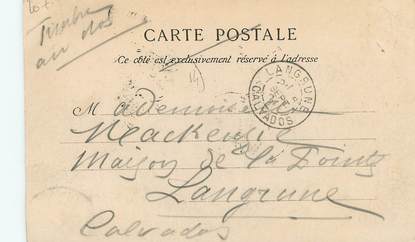 Timbre
au dos
CARTE POSTALE
Ce côté est exclusivement réservé à l'adresse
LANGRUNE
CALVADOS
Mademoiselle
Mackenzie
Maison de la Pointe
Langrune
Calvados